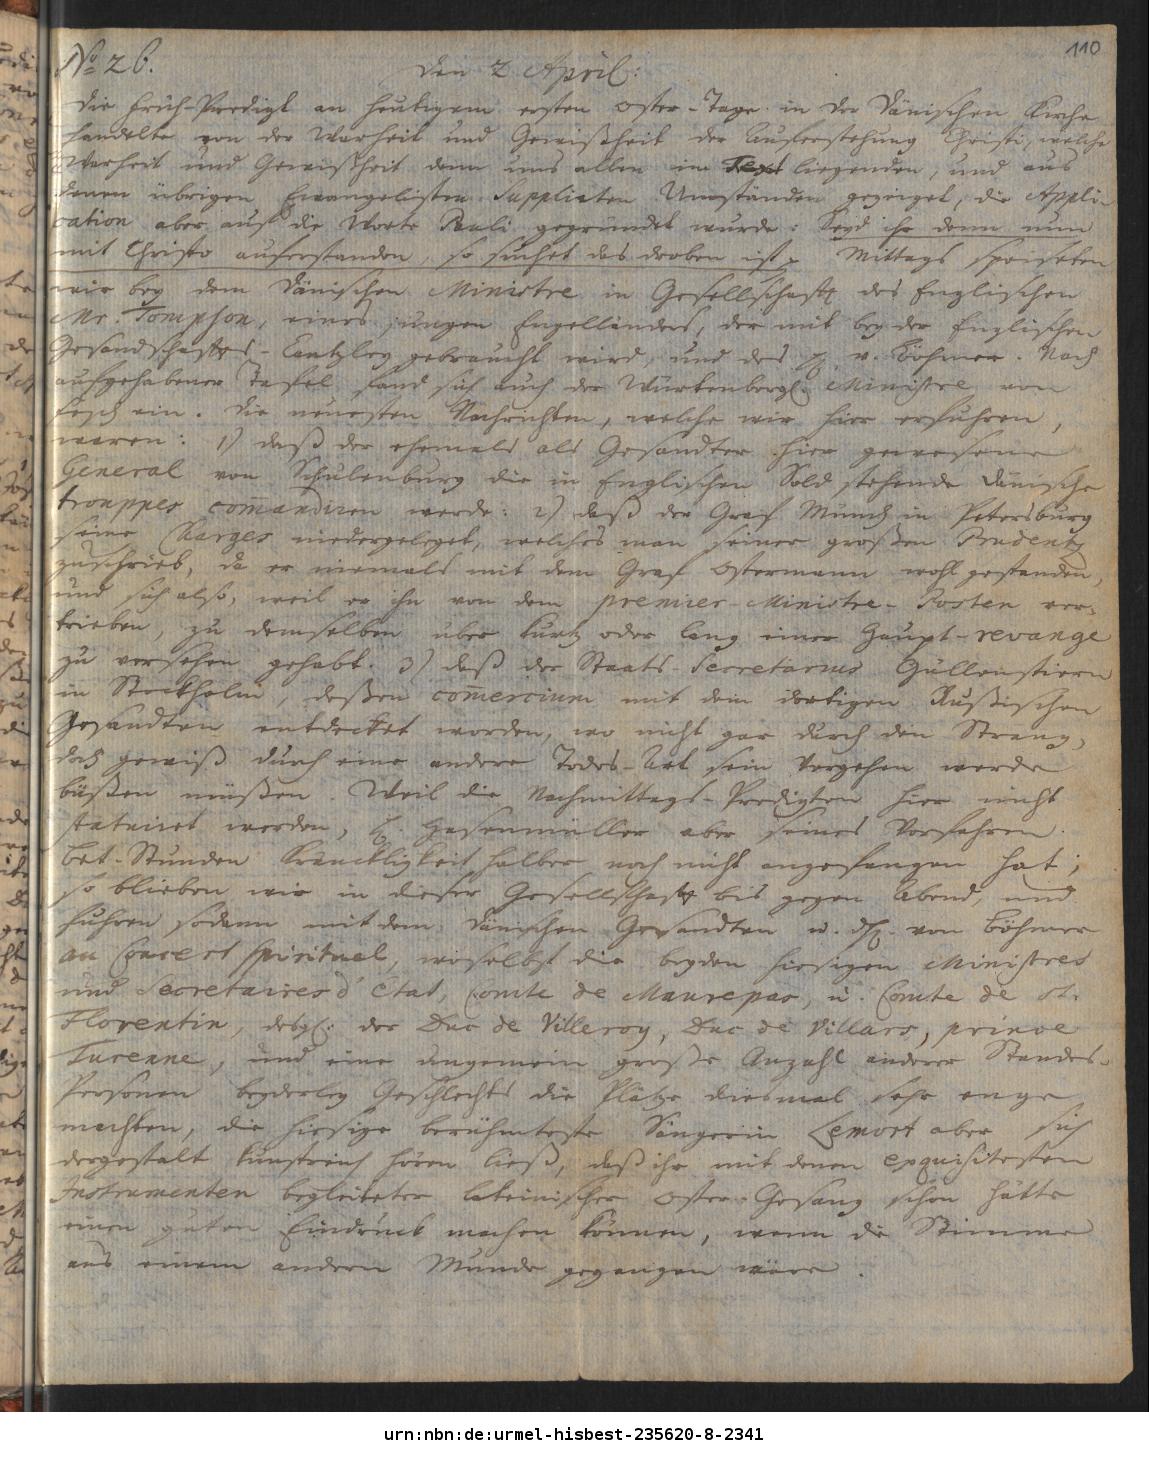 110
No 26.
Den 2 April:
Die Früh-Predigt an heutigem ersten Oster-Tage in der Dänischen Kirche
handelte von der Warheit und Gewißheit der Auferstehung Christi, welche
Warheit und Gewißheit denn uns allen im Text liegenden, und aus
denen übrigen Evangelisten Supplirten Umständen gezeiget, die Appli-
cation aber auf die Worte Pauli gegründet wurde: Seyd ihr denn nun
mit Christo auferstanden, so suchet das droben ist. Mittags speiseten
wir bey dem Dänischen Ministre in Gesellschafft des Englischen
Mr. Tompson, eines jungen Engelländers, der mit bey der Englischen
Gesandschaffts-Cantzley gebraucht wird, und des H. v. Böhmer. Nach
aufgehabener Tafel fand sich auch der Würtenbergl. Ministre von
Fesch ein. Die neuesten Nachrichten, welche wir hier erfuhren,
waren: 1) daß der ehemals als Gesandter hier gewesene
General von Schulenburg die in Englischen Sold stehende Dänische
trouppes commandiren werde: 2) daß der Graf Münch in Petersburg
seine Charges niedergeleget, welches man seiner großen Prudentz
zuschrieb, da er niemals mit dem Graf Ostermann wohl gestanden,
und sich also, weil er ihn von dem premier-Ministre-Posten ver-
trieben, zu demselben über kurtz oder lang einer Haupt-revange
zu versehen gehabt. 3) daß der Staats-Secretarius Güllenstiern
in Stockholm, deßen commercium mit dem dortigen Rußischen
Gesandten entdecket worden, wo nicht gar durch den Strang,
doch gewiß durch eine andere Todes-Art sein Vergehen werde
büßen müßen. Weil die Nachmittags-Predigten hier nicht
statuiret werden, H. Hasenmüller aber seines Vorfahren
Bet-Stunden Kräncklichkeit halber noch nicht angefangen hat;
so blieben wir in dieser Gesellschafft bis gegen Abend, und
fuhren sodann mit dem Dänischen Gesandten u. dH. von Böhmer
au Concert Spirituel, woselbst die beyden hiesigen Ministres
und Secretaires d'Etat, Comte de Maurepas, u. Comte de St.
Florentin, desgl. der Duc de Villeroy, Duc de Villars, prince
Turenne, und eine ungemein große Anzahl anderer Standes-
Personen beyderley Geschlechts die Plätze diesmal sehr enge
machten, die hiesige berühmteste Sängerin Lemort aber sich
dergestalt kunstreich hören ließ, daß ihr mit denen exquisitesten
Instrumenten begleiteter lateinischer Oster-Gesang schon hätte
einen guten Eindruck machen können, wenn die Stimme
aus einem andern Munde gegangen wäre.
urn:nbn:de:urmel-hisbest-235620-8-2341